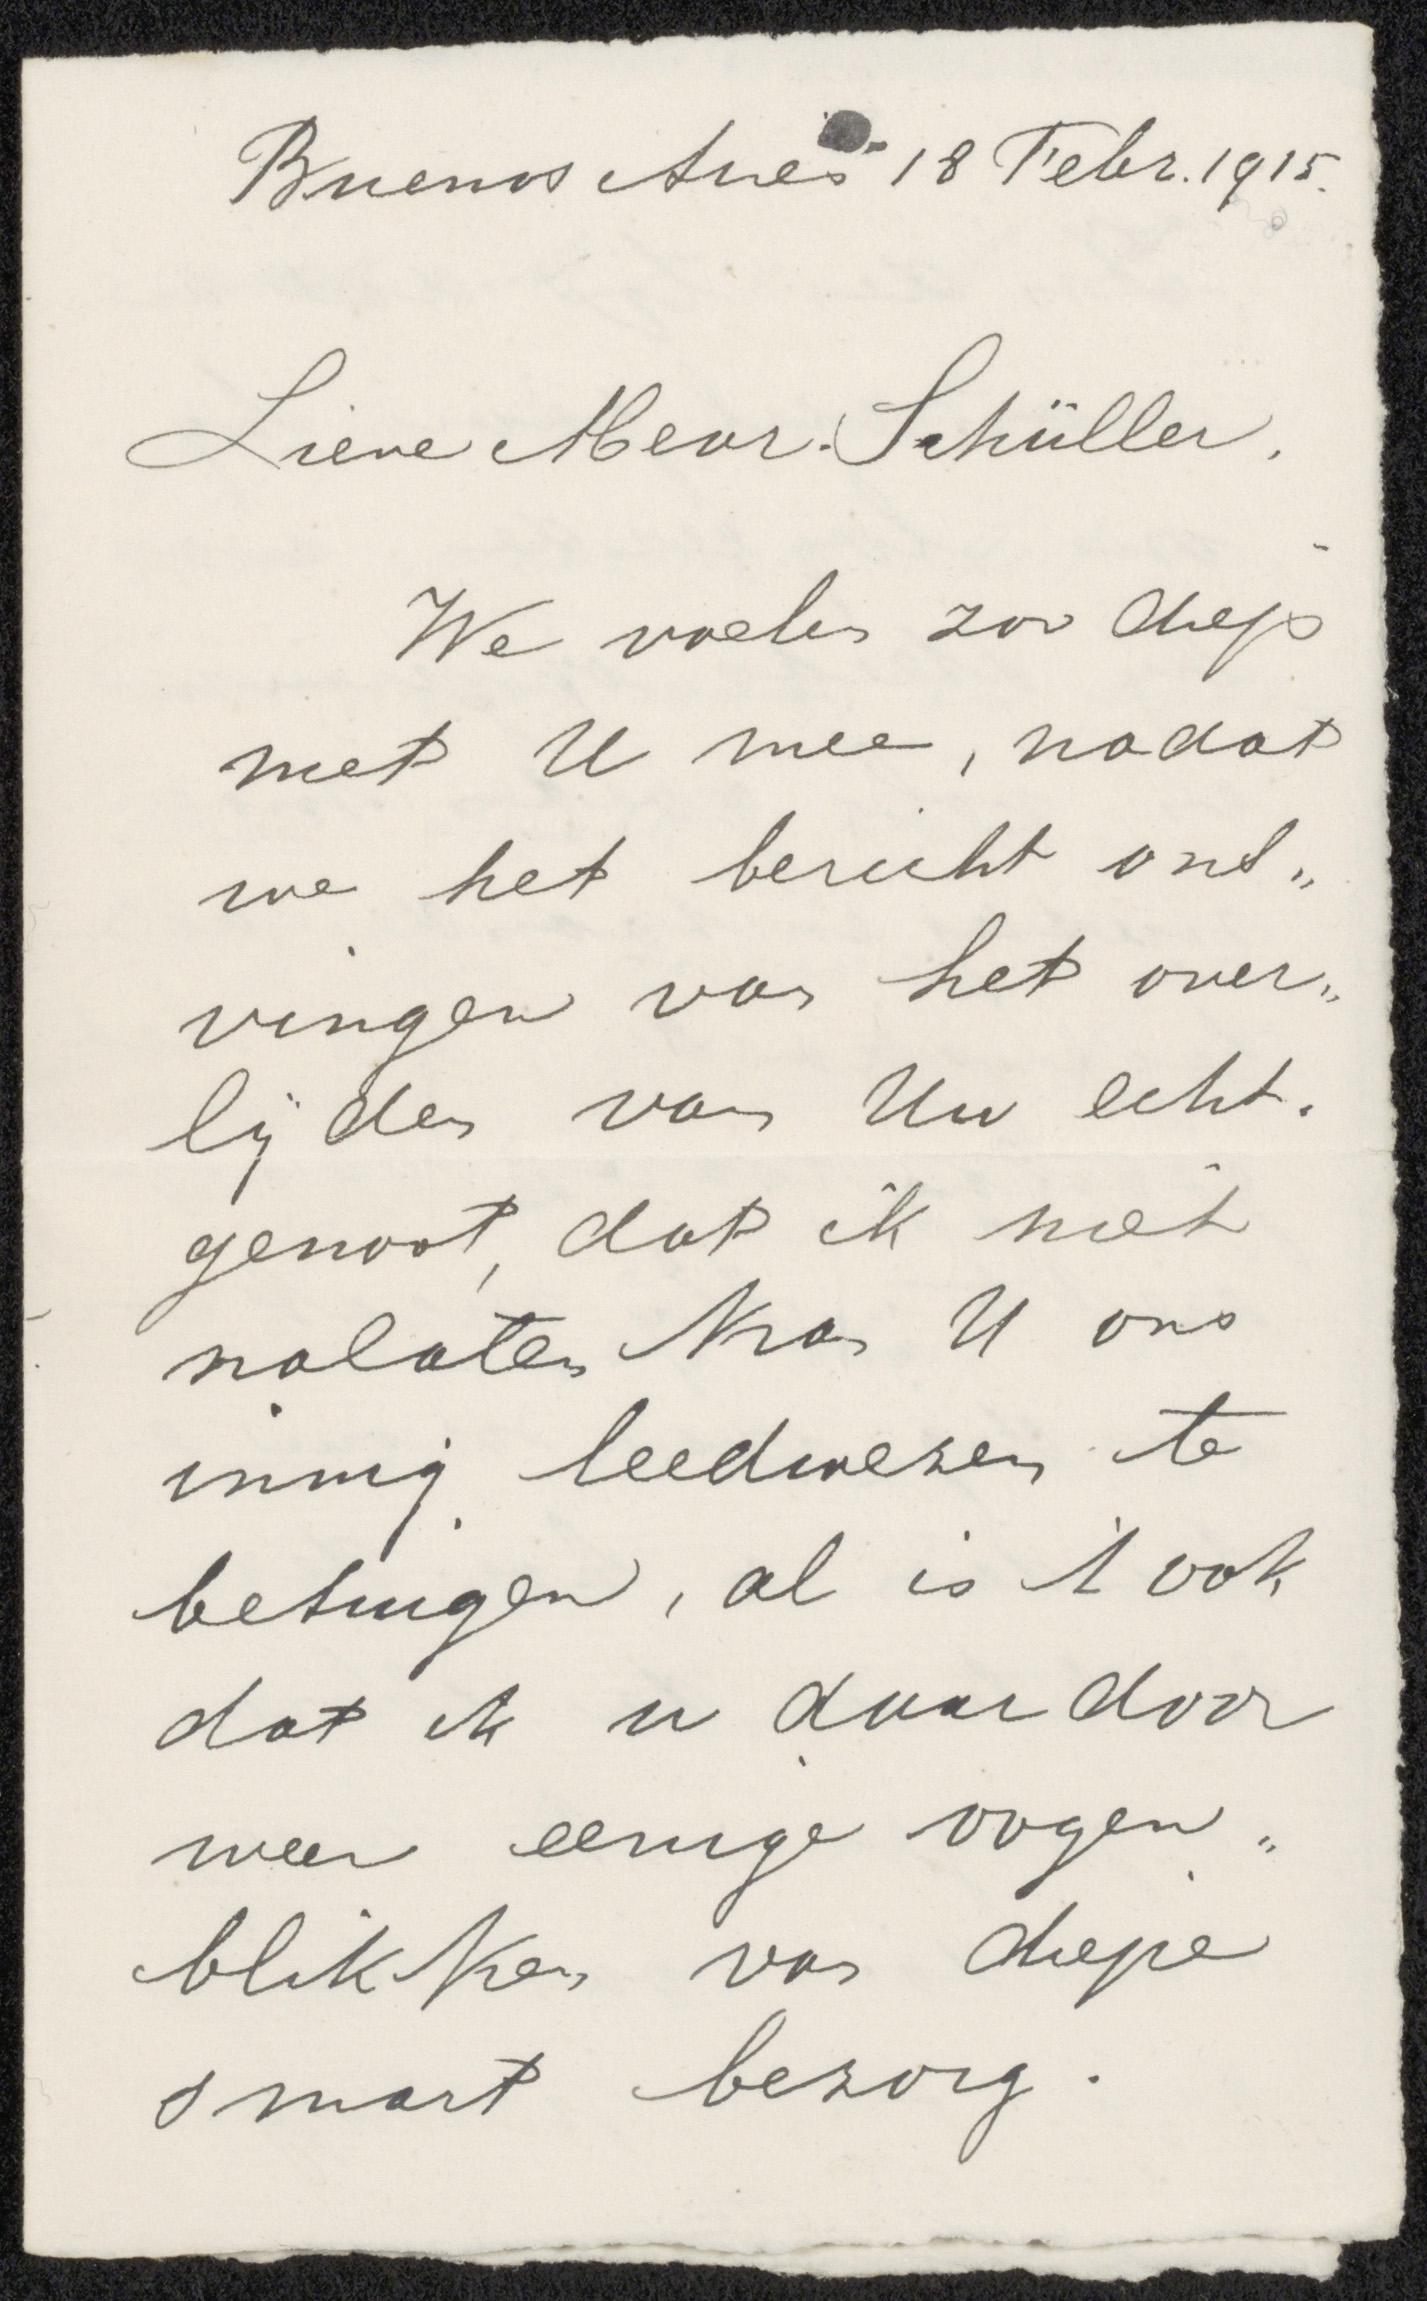 Buenos Aires 18 Febr. 1915.
Lieve Mevr. Schüller.
We voelen zoo diep
met U mee, nadat
we het bericht ont„
vingen van het over„
lijden van Uw echt.
genoot, dat ik niet
nalaten kan U ons
innig leedwezen te
betuigen, al is 't ook
dat ik u daardoor
weer eenige oogen„
blikken van diepe
smart bezorg.